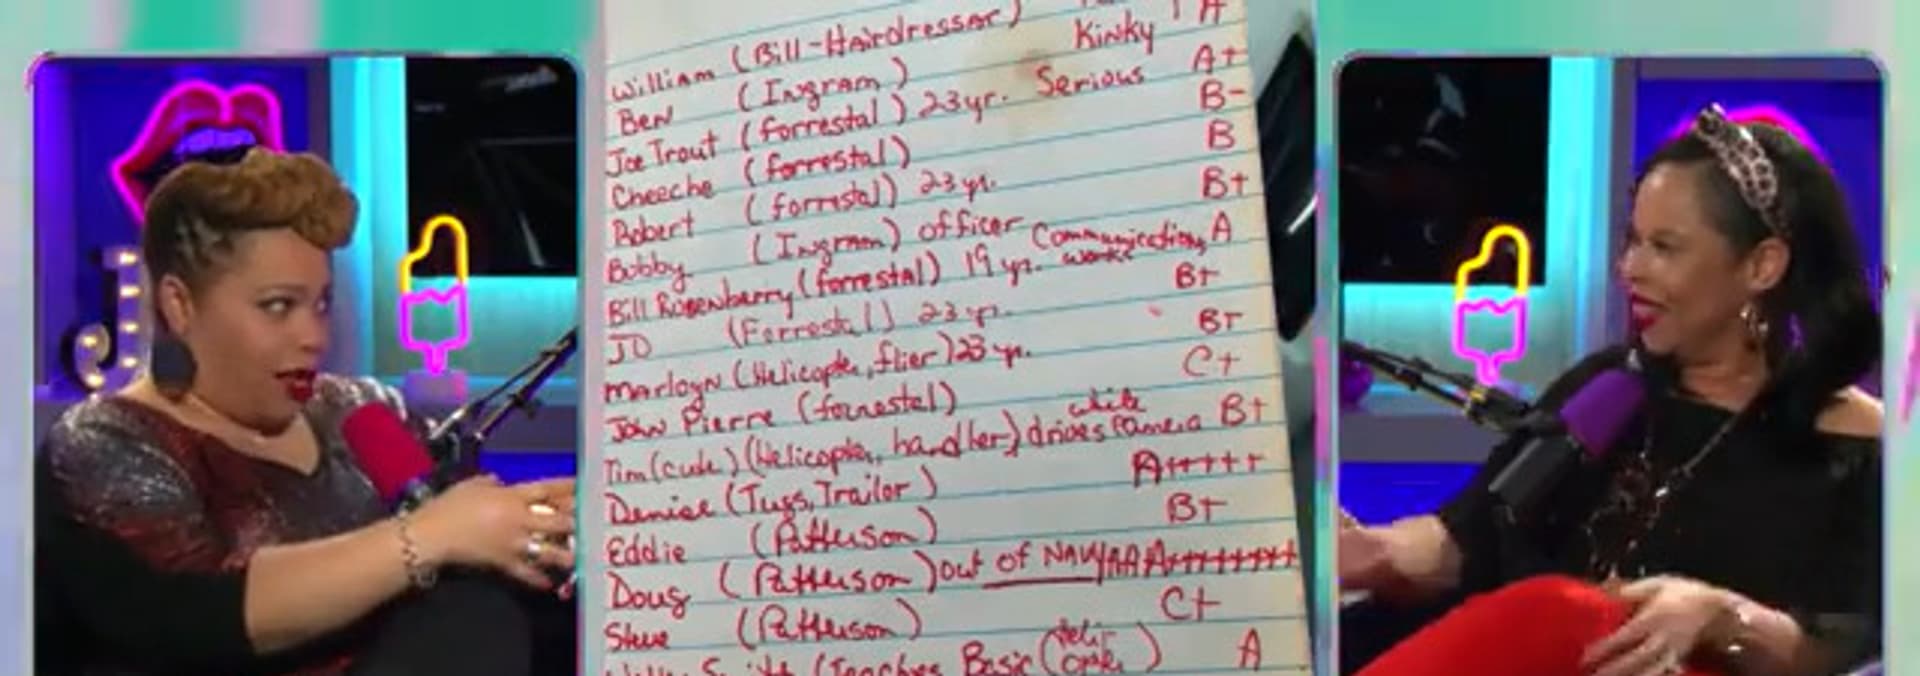 J
William (Bill-Hairdresser) A
Ben (Ingram) Kinky
Joe Trout (forrestal) 23yr. Serious A+
Cheeche (forrestal) B-
Robert (forrestal) 23 yr. B
Bobby (Ingram) officer B+
Bill Rosenberry (forrestal) 19 yr. Communications works A
JD (Forrestal) 23 yr. B+
Marloyn (Helicopter, flier) 23 yr. B+
John Pierre (forrestal) C+
Tim (cute) (Helicopter, handler) drives white Camera B+
Denise (Tugs, Trailor) A+++++
Eddie (Patterson) B+
Doug (Patterson) out of NAVY AAA++++++++
Steve (Patterson) C+
(Teaches Basic A